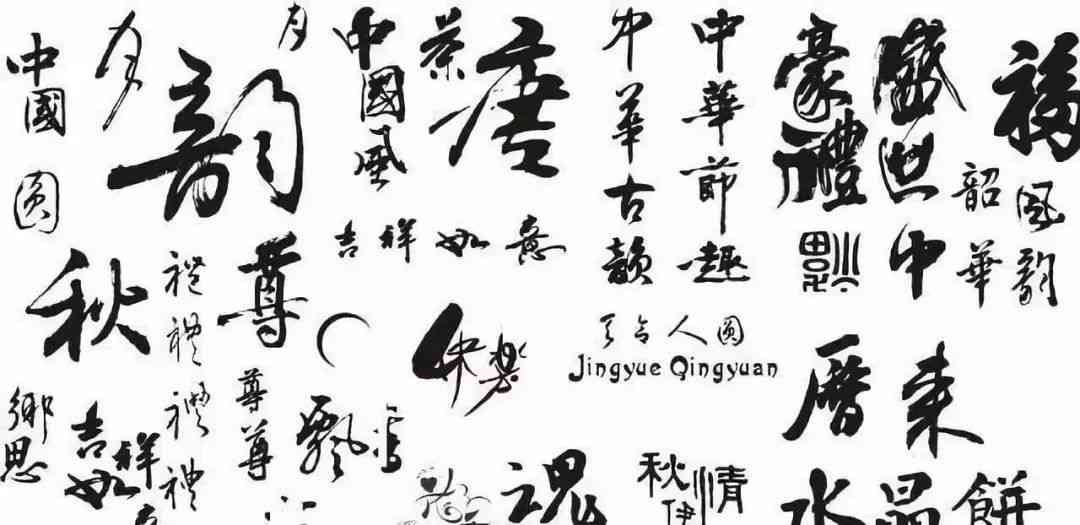 中國
圆
月
韵
月
中國風
茶
唐
中华古韻
中華節趣
豪禮
盛世中
福
韶華
風韵
吉祥如意
秋
禮
禮
禮
禮
尊
快樂
人圆
Jingyue Qingyuan
鄉思
吉祥如
尊尊
飘
魂
秋
情
伊
水晶餅